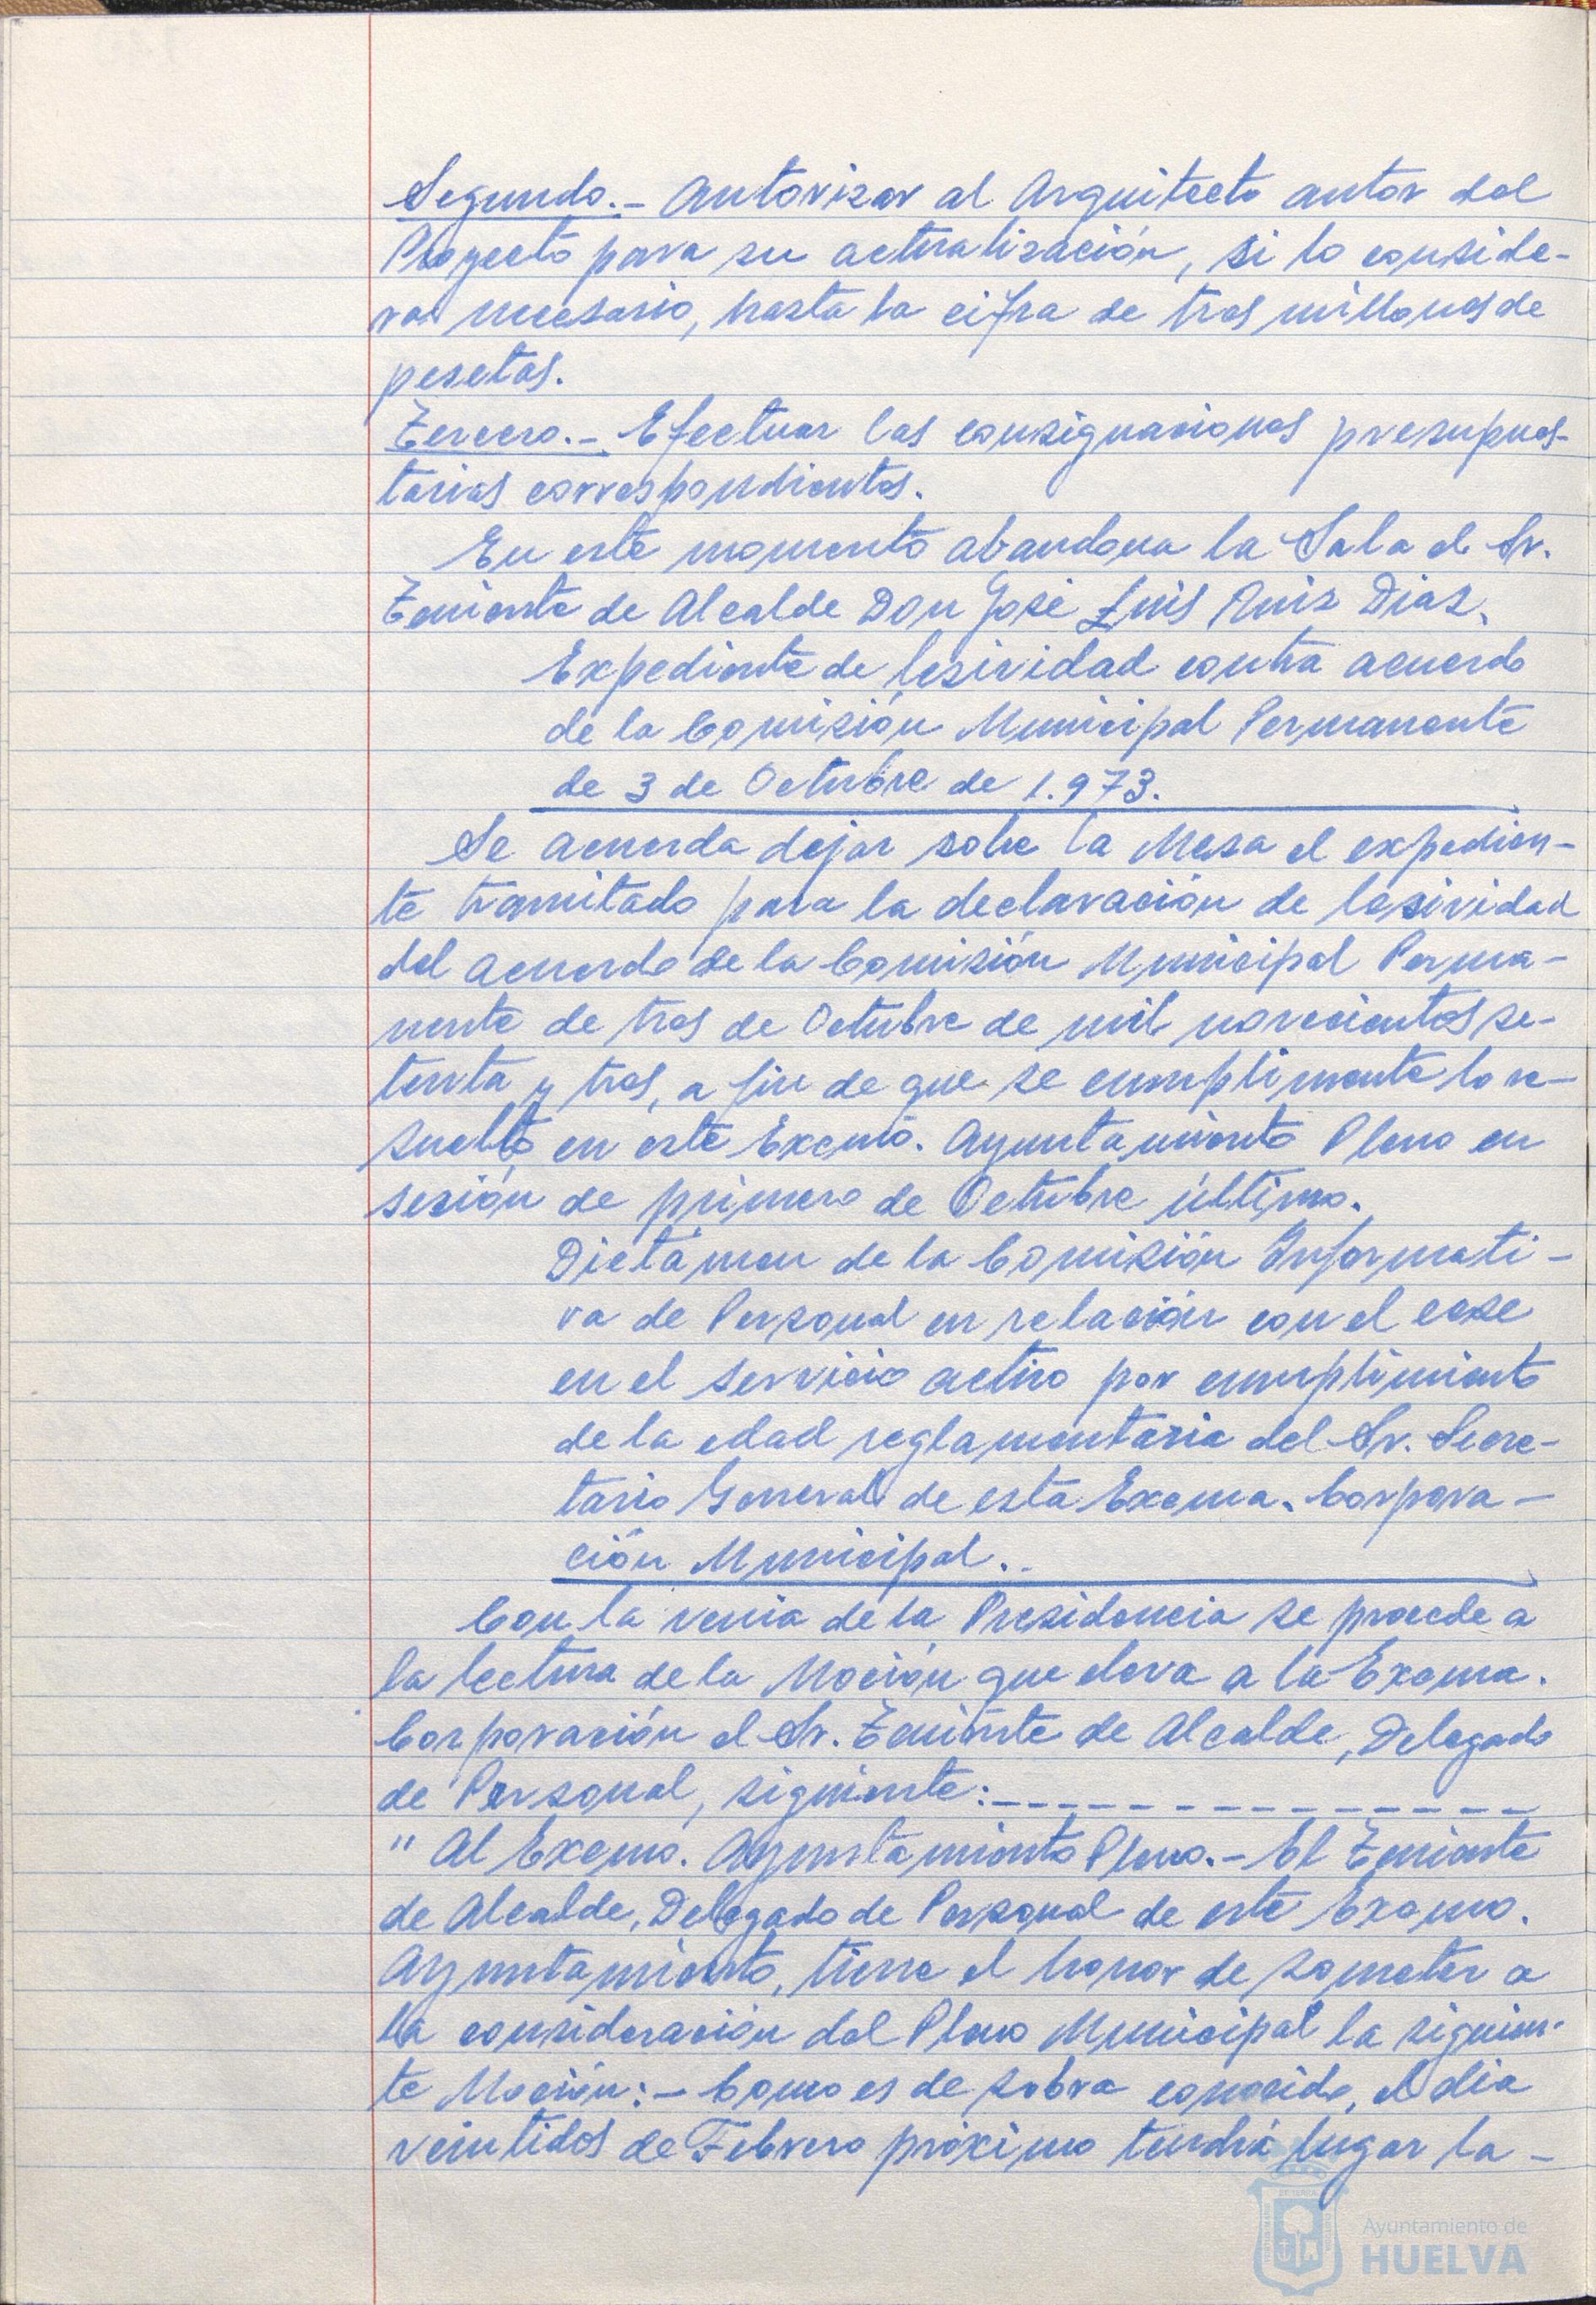 Segundo.- Autorizar al Arquitecto autor del
Proyecto para su actualización, si lo conside-
ra necesario, hasta la cifra de tres millones de
pesetas.
Tercero.- Efectuar las consignaciones presupues-
tarias correspondientes.
En este momento abandona la Sala el Sr.
Teniente de Alcalde Don José Luis Ruiz Diaz.
Expediente de lesividad contra acuerdo
de la Comisión Municipal Permanente
de 3 de Octubre de 1.973.
Se acuerda dejar sobre la Mesa el expedien-
te tramitado para la declaración de lesividad
del acuerdo de la Comisión Municipal Perma-
nente de tres de Octubre de mil novecientos se-
tenta y tres, a fin de que se cumplimente lo re-
suelto en este Excmo. Ayuntamiento Pleno en
sesión de primero de Octubre último.
Dictámen de la Comisión Informati-
va de Personal en relación con el cese
en el servicio activo por cumplimiento
de la edad reglamentaria del Sr. Secre-
tario General de esta Excma. Corpora-
ción Municipal..
Con la venia de la Presidencia se procede a
la lectura de la Moción que eleva a la Excma.
Corporación el Sr. Teniente de Alcalde, Delegado
de Personal, siguiente:_ _ _ _ _ _ _ _ _ _ _ _
" Al Excmo. Ayuntamiento Pleno.- El Teniente
de Alcalde, Delegado de Personal de este Excmo.
Ayuntamiento, tiene el honor de someter a
la consideración del Pleno Municipal la siguien-
te Moción:- Como es de sobra conocido, el dia
veintidos de Febrero próximo tendrá lugar la-
Ayuntamiento de
HUELVA